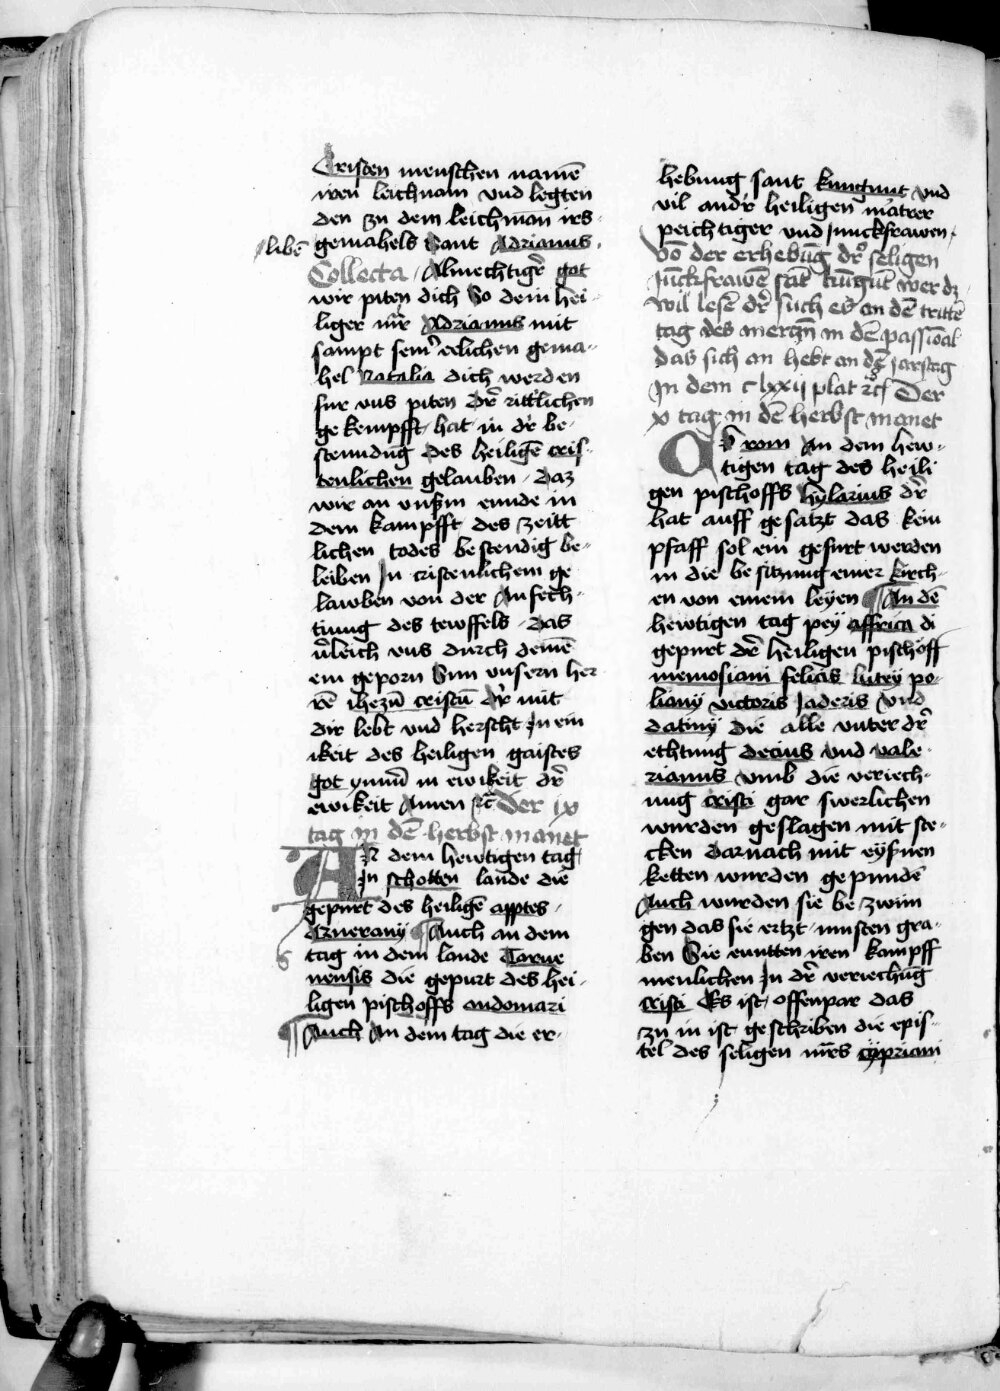 Cristen menschen namē
iren leichnam vnd legten
den zu dem leichnam irs
libē gemahels Sant Adrianus.
Collecta. Almechtigʳ got
wir piten dich So dein hei-
liger mʳ̄r Adrianus mit
sampt seinʳ eelichen gema-
hel Natalia dich werden
fur vns piten Der̄ ritʳlichen
gekempfft hat in dʳ be-
stenndūg des heiligē cris-
tenlichen gelauben. Daz
wir an vnßm ennde in
dem kampfft des zeitt
lichen todes bestendig be-
leiben In cristenlichem ge
lawben von der Anfech-
tiung des tewffels. Das
v̄leich vns durch deinē
ein geporn Sun vnsern her
rē ihezū cristū dʳ mit
dir lebt vnd herscht In ein
ikeit des heiligen gaistes
got ymm̄ in ewikeit dʳ̄
ewikeit Amen ꝛc̄ Der ix
tag in dē herbst manet
AN dem hewtigen tag
In schotten lande die
gepurt des heiligē apptes.
Querany ¶ Auch an dem
tag in dem lande Tarue
nensis die gepurt des hei-
ligen pischoffs andomari
¶ Auch An dem tag die er-
hebung sant kungunt vnd
vil andʳ heiligen mātrer
peichtiger vnd junckfrawen.
Vō der erhebūg dʳ seligen
Jūckfrawē sāt kūgūt wer dz
wil lesē dʳ such es an dē trittē
tag des mertzn̄ in dē passional
das sich an hebt an dē jarstag
In dem clxxij plat ꝛc̄ Der
x tag in dē herbst manet
CZu rom An dem hew-
tigen tag des heili
gen pischoffs hylarius dʳ̄
hat auff gesatzt das kein
pfaff sol ein gefurt werden
in die besitzung einer kirch-
en von einem leyen ¶ An dē
hewtigen tag pey affrica di
gepurt dʳ̄ heiligen pischöff
memosiani felicis lutey po-
liany victoris Jaderis vnd
datiuy die alle vnter dʳ̄
echtung decius vnd vale-
rianus vmb die veriech-
nug cristi gar swerlichen
wurden geslagen mit ste-
cken darnach mit eyßnen
ketten wurden gepundē
Auch wurden sie bezwun
gen das sie ertzt musten gra-
ben Sie enntten iren kampff
menlichen In dʳ̄ veriechūg
cristi Es ist offenpar das
zu in ist geschriben die epis-
tel des seligen mr̄s cypriani